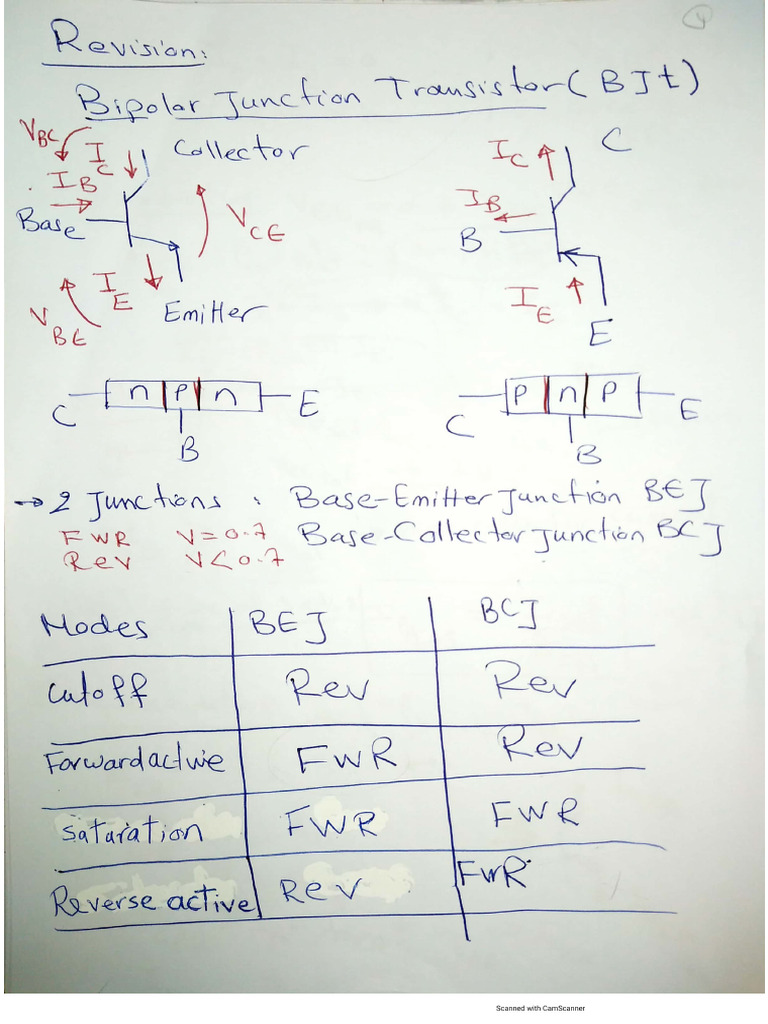 Revision:
Bipolar Junction Transistor (BJt)
VBC
IC
Collector
IB
Base
VCE
IE
VBE
Emitter
IC
C
IB
B
IE
E
C n p n E
B
C p n p E
B
→ 2 Junctions : Base-Emitter Junction BEJ
FWR V=0.7 Base-Collector Junction BCJ
Rev V<0.7
Modes BEJ BCJ
Cutoff Rev Rev
Forward active FWR Rev
Saturation FWR FWR
Reverse active Rev FWR
Scanned with CamScanner